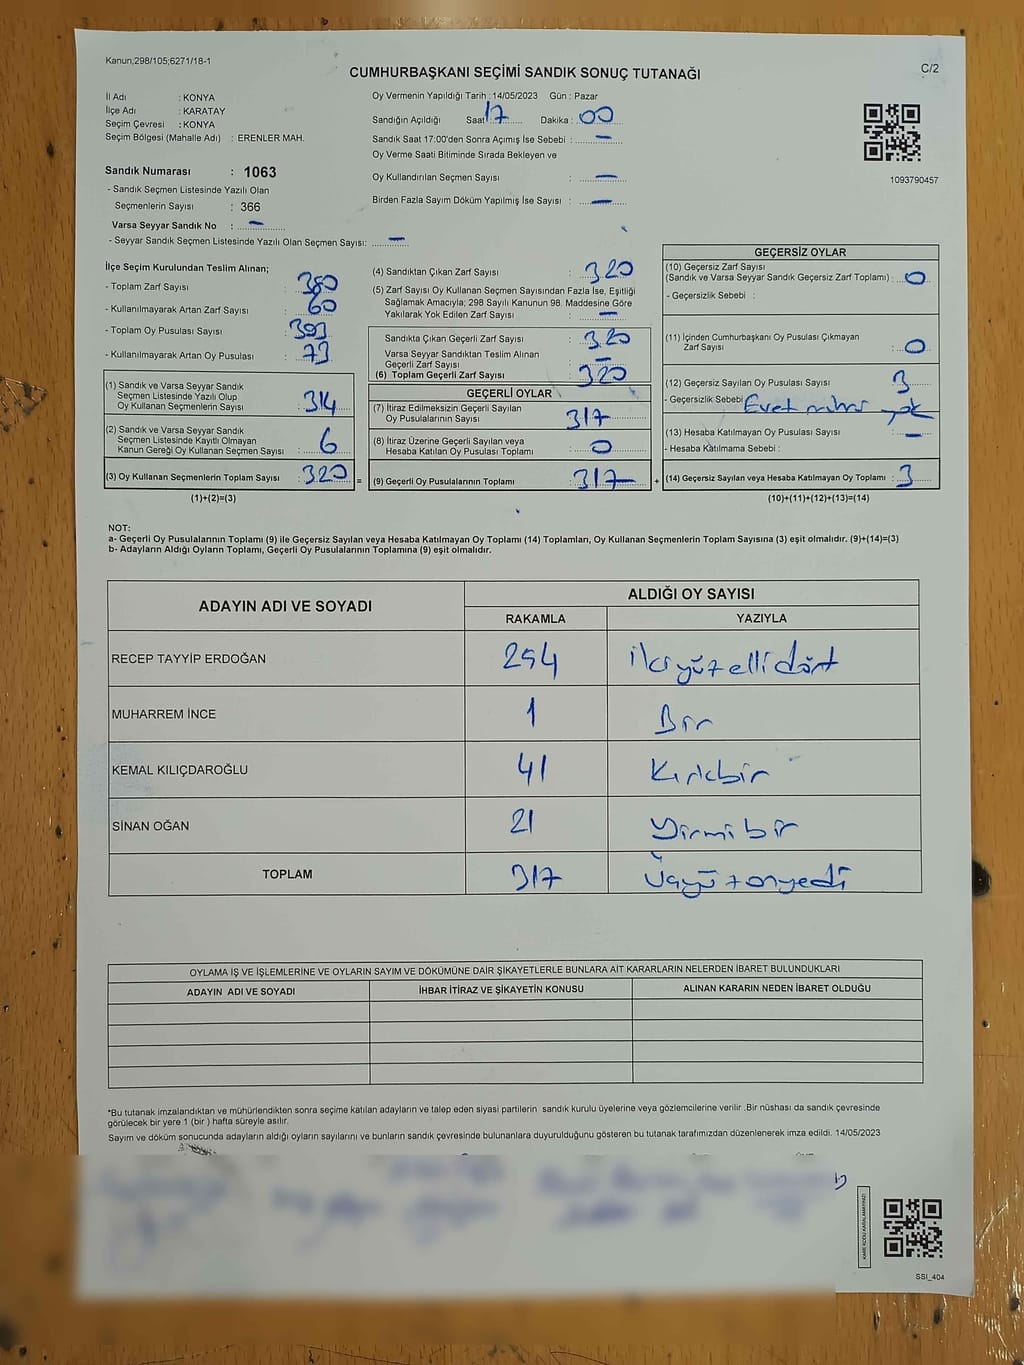 Kanun,298/105;6271/18-1
CUMHURBAŞKANI SEÇİMİ SANDIK SONUÇ TUTANAĞI
C/2
İl Adı : KONYA
İlçe Adı : KARATAY
Seçim Çevresi : KONYA
Seçim Bölgesi (Mahalle Adı) : ERENLER MAH.
Oy Vermenin Yapıldığı Tarih :14/05/2023 Gün : Pazar
Sandığın Açıldığı Saat 17 Dakika : 00
Sandık Saat 17:00'den Sonra Açımış İse Sebebi : —
Oy Verme Saati Bitiminde Sırada Bekleyen ve
Oy Kullandırılan Seçmen Sayısı : —
Birden Fazla Sayım Döküm Yapılmış İse Sayısı : —
1093790457
Sandık Numarası : 1063
- Sandık Seçmen Listesinde Yazılı Olan
Seçmenlerin Sayısı : 366
Varsa Seyyar Sandık No : —
- Seyyar Sandık Seçmen Listesinde Yazılı Olan Seçmen Sayısı: —
İlçe Seçim Kurulundan Teslim Alınan;
- Toplam Zarf Sayısı : 380
- Kullanılmayarak Artan Zarf Sayısı : 60
- Toplam Oy Pusulası Sayısı : 393
- Kullanılmayarak Artan Oy Pusulası : 73
(1) Sandık ve Varsa Seyyar Sandık
Seçmen Listesinde Yazılı Olup
Oy Kullanan Seçmenlerin Sayısı : 314
(2) Sandık ve Varsa Seyyar Sandık
Seçmen Listesinde Kayıtlı Olmayan
Kanun Gereği Oy Kullanan Seçmen Sayısı : 6
(3) Oy Kullanan Seçmenlerin Toplam Sayısı : 320 =
(1)+(2)=(3)
(4) Sandıktan Çıkan Zarf Sayısı : 320
(5) Zarf Sayısı Oy Kullanan Seçmen Sayısından Fazla İse, Eşitliği
Sağlamak Amacıyla; 298 Sayılı Kanunun 98. Maddesine Göre
Yakılarak Yok Edilen Zarf Sayısı : —
Sandıkta Çıkan Geçerli Zarf Sayısı : 320
Varsa Seyyar Sandıktan Teslim Alınan
Geçerli Zarf Sayısı : —
(6) Toplam Geçerli Zarf Sayısı : 320
GEÇERLİ OYLAR
(7) İtiraz Edilmeksizin Geçerli Sayılan
Oy Pusulalarının Sayısı : 317
(8) İtiraz Üzerine Geçerli Sayılan veya
Hesaba Katılan Oy Pusulası Toplamı : 0
(9) Geçerli Oy Pusulalarının Toplamı : 317 +
GEÇERSİZ OYLAR
(10) Geçersiz Zarf Sayısı
(Sandık ve Varsa Seyyar Sandık Geçersiz Zarf Toplamı) : 0
- Geçersizlik Sebebi :
(11) İçinden Cumhurbaşkanı Oy Pusulası Çıkmayan
Zarf Sayısı : 0
(12) Geçersiz Sayılan Oy Pusulası Sayısı : 3
- Geçersizlik Sebebi Evet mührü yok
(13) Hesaba Katılmayan Oy Pusulası Sayısı : —
- Hesaba Katılmama Sebebi :
(14) Geçersiz Sayılan veya Hesaba Katılmayan Oy Toplamı : 3
(10)+(11)+(12)+(13)=(14)
NOT:
a- Geçerli Oy Pusulalarının Toplamı (9) ile Geçersiz Sayılan veya Hesaba Katılmayan Oy Toplamı (14) Toplamları, Oy Kullanan Seçmenlerin Toplam Sayısına (3) eşit olmalıdır. (9)+(14)=(3)
b- Adayların Aldığı Oyların Toplamı, Geçerli Oy Pusulalarının Toplamına (9) eşit olmalıdır.
ADAYIN ADI VE SOYADI
ALDIĞI OY SAYISI
RAKAMLA YAZIYLA
RECEP TAYYİP ERDOĞAN 254 İkiyüzellidört
MUHARREM İNCE 1 Bir
KEMAL KILIÇDAROĞLU 41 Kırkbir
SİNAN OĞAN 21 Yirmibir
TOPLAM 317 Üçyüzonyedi
OYLAMA İŞ VE İŞLEMLERİNE VE OYLARIN SAYIM VE DÖKÜMÜNE DAİR ŞİKAYETLERLE BUNLARA AİT KARARLARIN NELERDEN İBARET BULUNDUKLARI
ADAYIN ADI VE SOYADI İHBAR İTİRAZ VE ŞİKAYETİN KONUSU ALINAN KARARIN NEDEN İBARET OLDUĞU
*Bu tutanak imzalandıktan ve mühürlendikten sonra seçime katılan adayların ve talep eden siyasi partilerin sandık kurulu üyelerine veya gözlemcilerine verilir .Bir nüshası da sandık çevresinde
görülecek bir yere 1 (bir ) hafta süreyle asılır.
Sayım ve döküm sonucunda adayların aldığı oyların sayılarını ve bunların sandık çevresinde bulunanlara duyurulduğunu gösteren bu tutanak tarafımızdan düzenlenerek imza edildi. 14/05/2023
KARE KODU KARALAMAYINIZ!
SSI_404